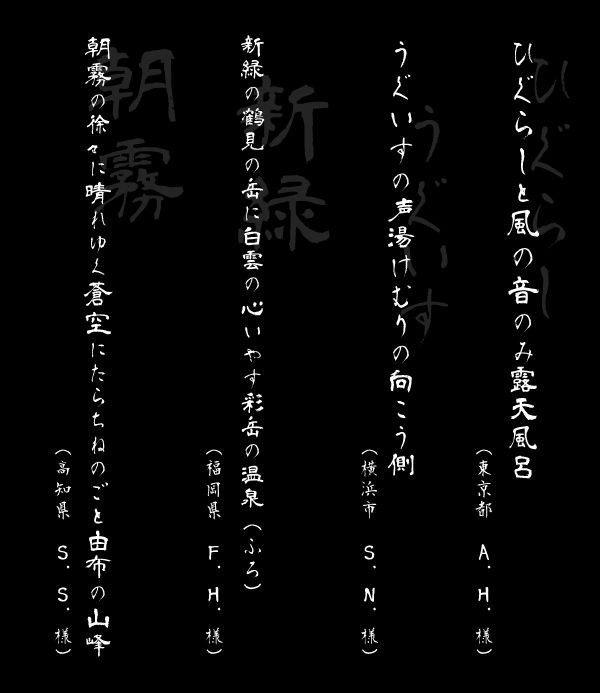 ひぐらし
ひぐらしと風の音のみ露天風呂
(東京都　A.H.様)
うぐいす
うぐいすの声湯けむりの向こう側
(横浜市　S.N.様)
新緑
新緑の鶴見の岳に白雲の心いやす彩岳の温泉(ふろ)
(福岡県　F.H.様)
朝霧
朝霧の徐々に晴れゆく蒼空にたらちねのごと由布の山峰
(高知県　S.S.様)